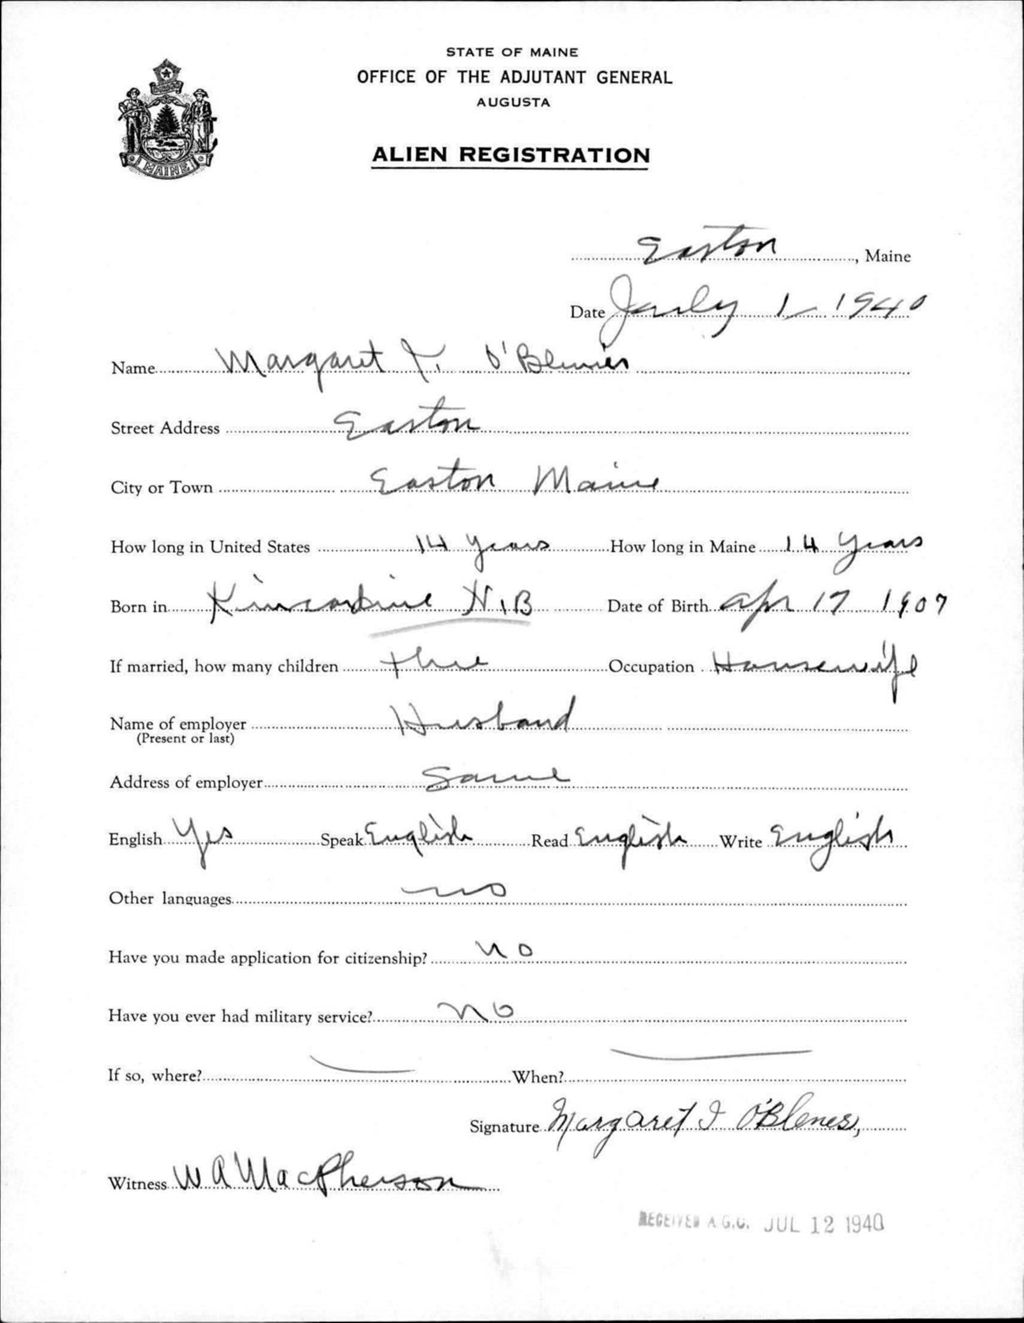 STATE OF MAINE
OFFICE OF THE ADJUTANT GENERAL
AUGUSTA
MAINE
ALIEN REGISTRATION
Easton, Maine
Date July 1 1940
Name Margaret I. O'Blenies
Street Address Easton
City or Town Easton Maine
How long in United States 14 Years How long in Maine 14 Years
Born in Kincardine N.B Date of Birth Apr 17 1907
If married, how many children three Occupation Housewife
Name of employer Husband
(Present or last)
Address of employer Same
English Yes Speak English Read English Write English
Other languages no
Have you made application for citizenship? no
Have you ever had military service? no
If so, where? When?
Signature Margaret I O'Blenes,
Witness W A MacPherson
RECEIVED A.G.O. JUL 12 1940